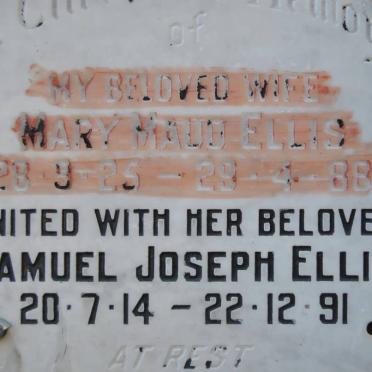 of
MY BELOVED WIFE
MARY MAUD ELLIS
28·9·25 – 29·4·88
NITED WITH HER BELOVE
AMUEL JOSEPH ELLI
20·7·14 – 22·12·91
AT REST